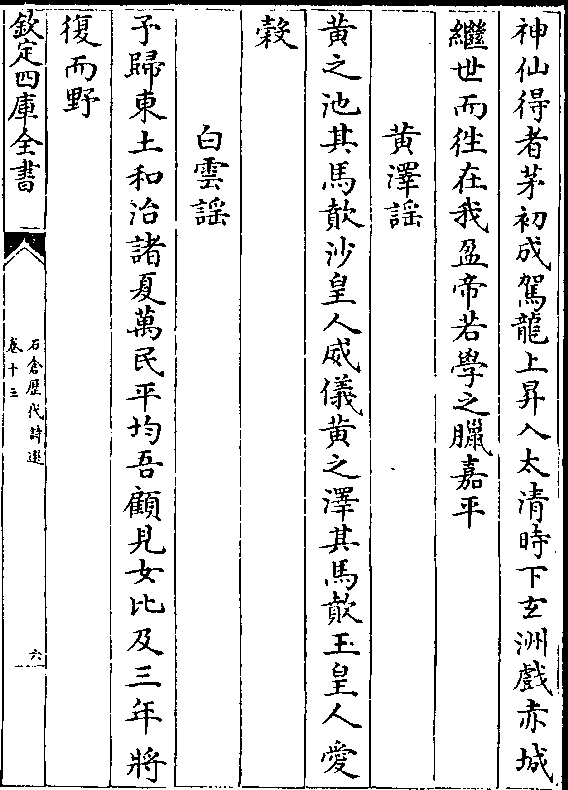 神仙得者茅初成駕龍上昇入太清時下玄洲戲赤城
繼世而往在我盈帝若學之臘嘉平
黄澤謡
黄之池其馬歕沙皇人威儀黄之澤其馬歕玉皇人愛
糓
白雲謡
予歸東土和治諸夏萬民平均吾顧見女比及三年將
復而野
欽定四庫全書
石倉歴代詩選
卷十三
六